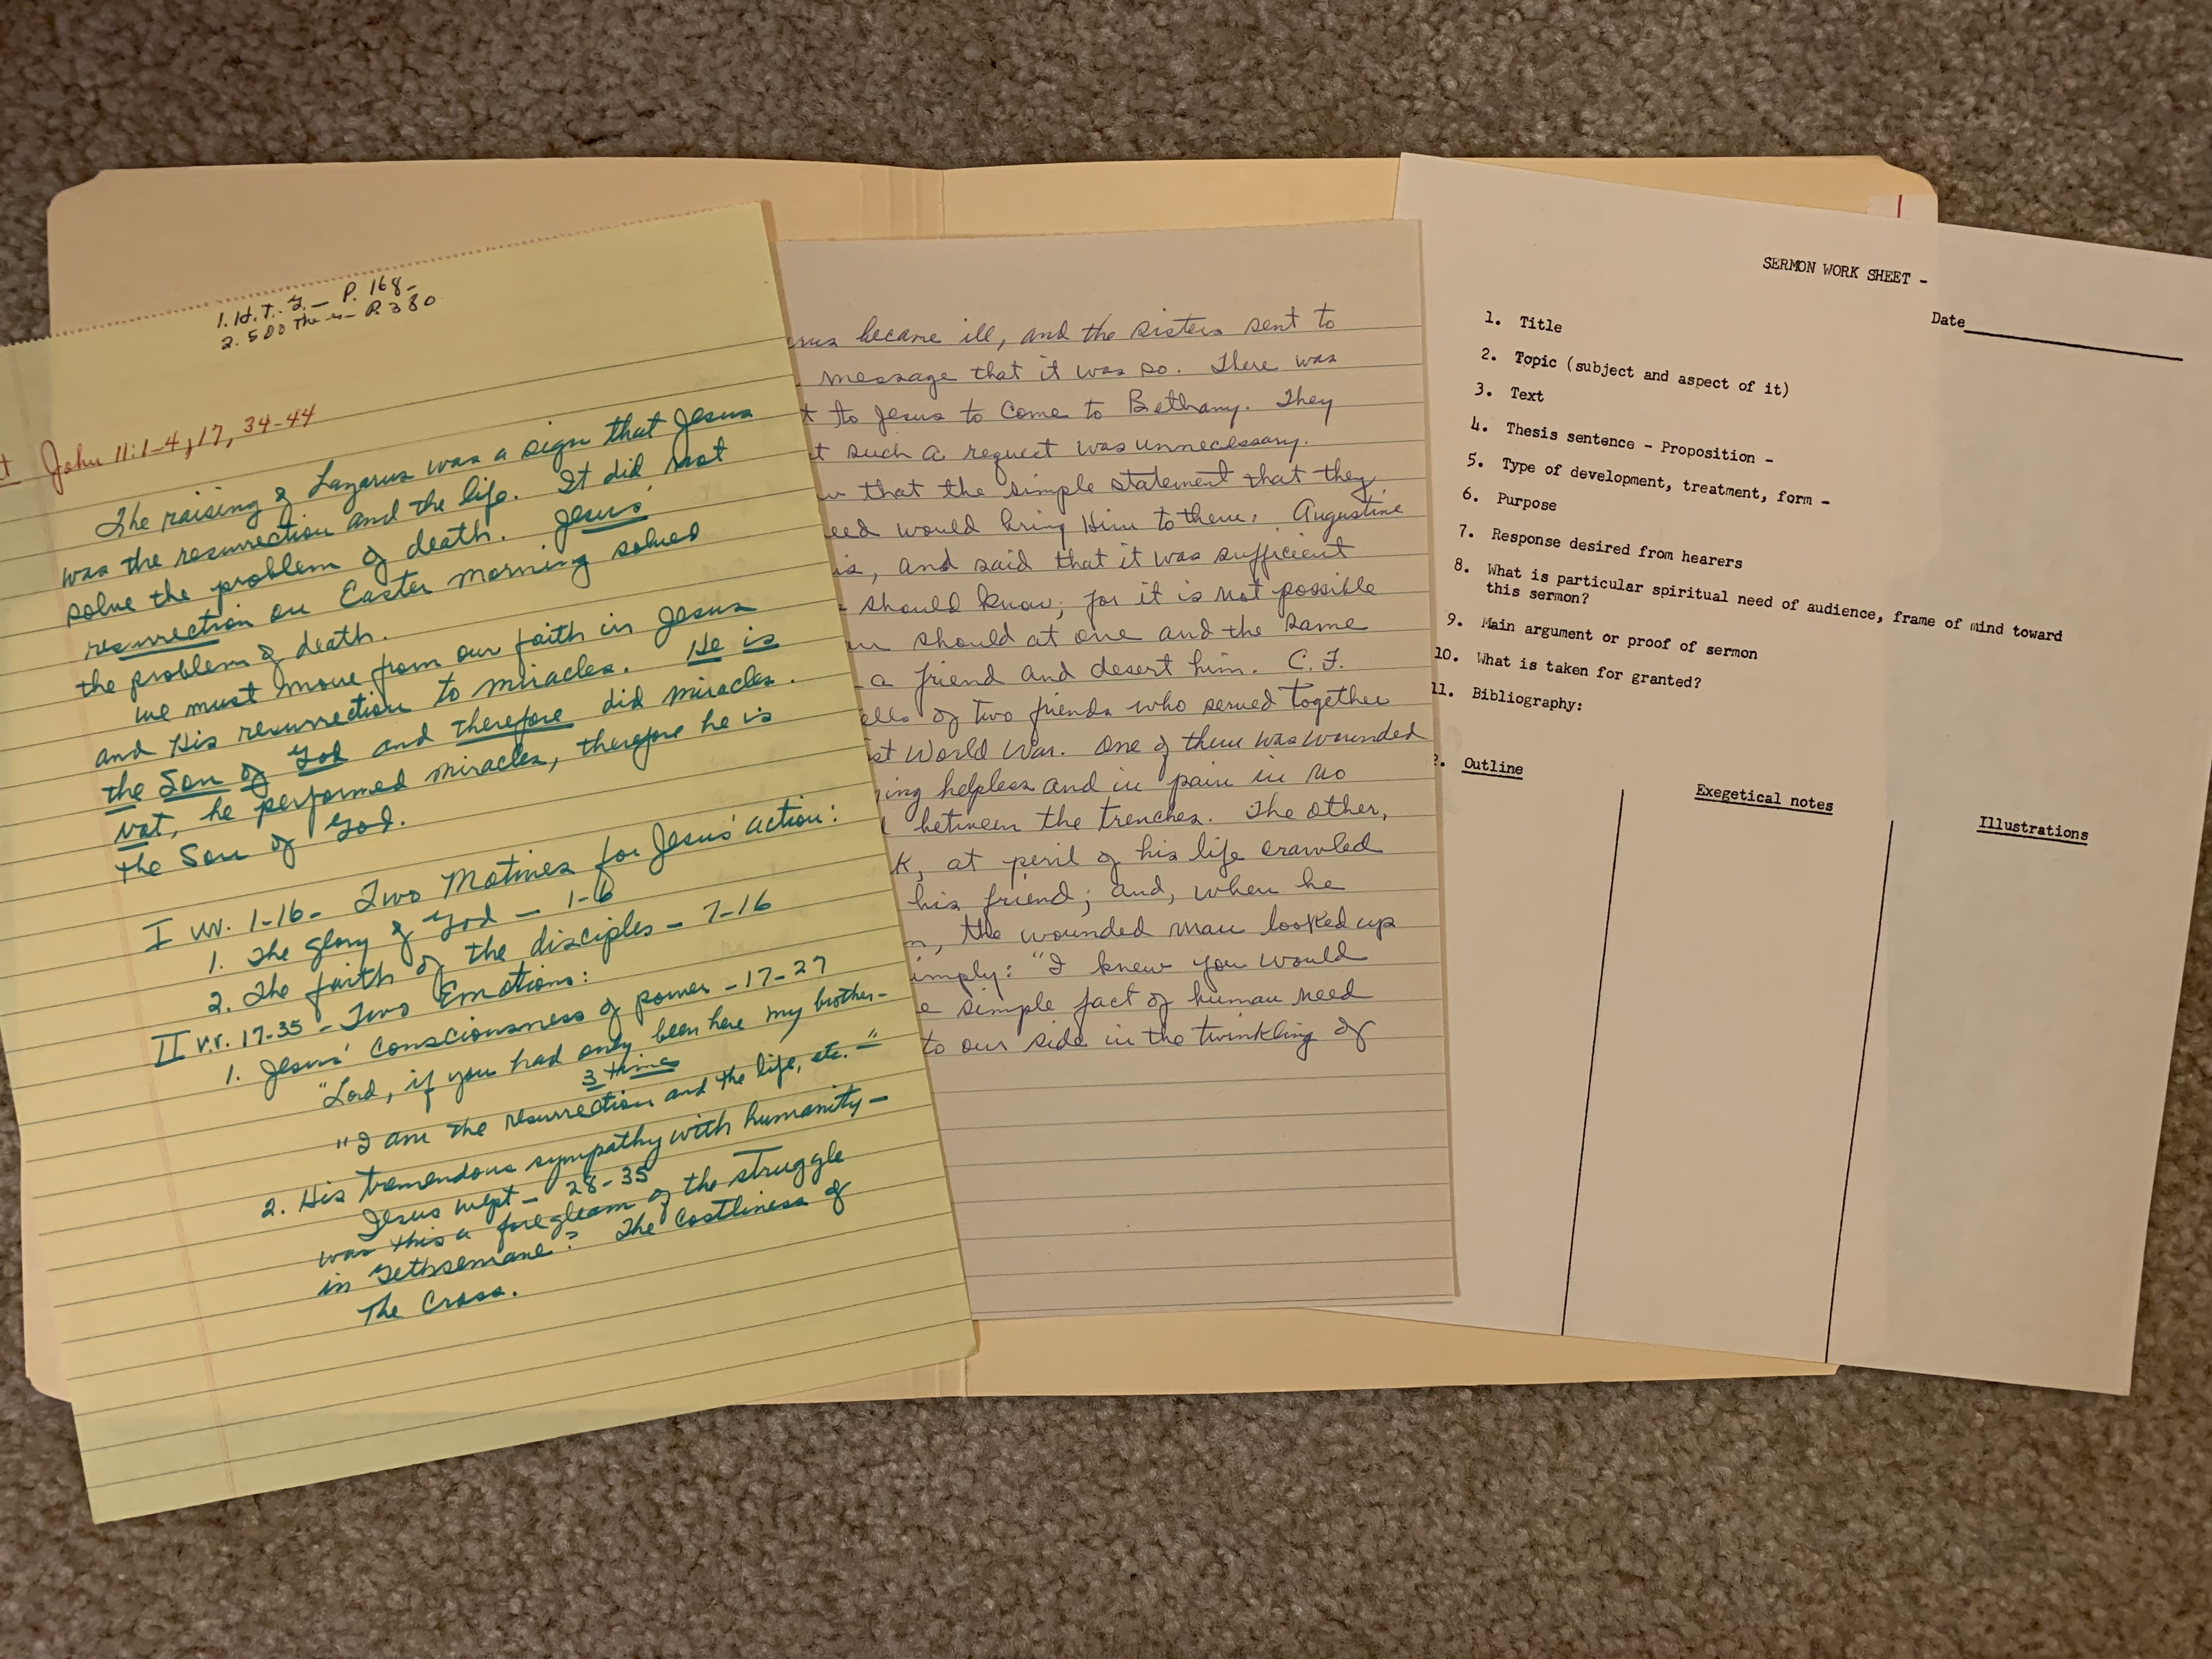 1. H.T. P. 168-
2. 500 P. 380
John 11:1-4, 17, 34-44
The raising of Lazarus was a sign that Jesus
was the resurrection and the life. It did not
solve the problem of death. Jesus'
resurrection on Easter morning solved
the problem of death.
We must move from our faith in Jesus
and His resurrection to miracles. He is
the Son of God and therefore did miracles.
Not, he performed miracles, therefore he is
the Son of God.
I vv. 1-16- Two Motives for Jesus' action:
1. The glory of God - 1-6
2. The faith of the disciples - 7-16
II v.v. 17-35 - Two Emotions:
1. Jesus' consciousness of power - 17-27
"Lord, if you had only been here my brother-
3 things
"I am the resurrection and the life, etc.-"
2. His tremendous sympathy with humanity-
Jesus wept - 28-35
was this a foregleam of the struggle
in Gethsemane? The Costliness of
The Cross.
became ill, and the sisters sent to
message that it was so. There was
to Jesus to come to Bethany. They
such a request was unnecessary.
that the simple statement that they
would bring Him to them. Augustine
and said that it was sufficient
should know; for it is not possible
should at one and the same
a friend and desert him. C. F.
of two friends who served together
World War. One of them was wounded
helpless and in pain in no
between the trenches. The other,
at peril of his life crawled
his friend; and, when he
the wounded man looked up
"I knew you would
simple fact of human need
to our side in the twinkling of
SERMON WORK SHEET -
Date
1. Title
2. Topic (subject and aspect of it)
3. Text
4. Thesis sentence - Proposition -
5. Type of development, treatment, form -
6. Purpose
7. Response desired from hearers
8. What is particular spiritual need of audience, frame of mind toward
this sermon?
9. Main argument or proof of sermon
10. What is taken for granted?
11. Bibliography:
2. Outline
Exegetical notes
Illustrations